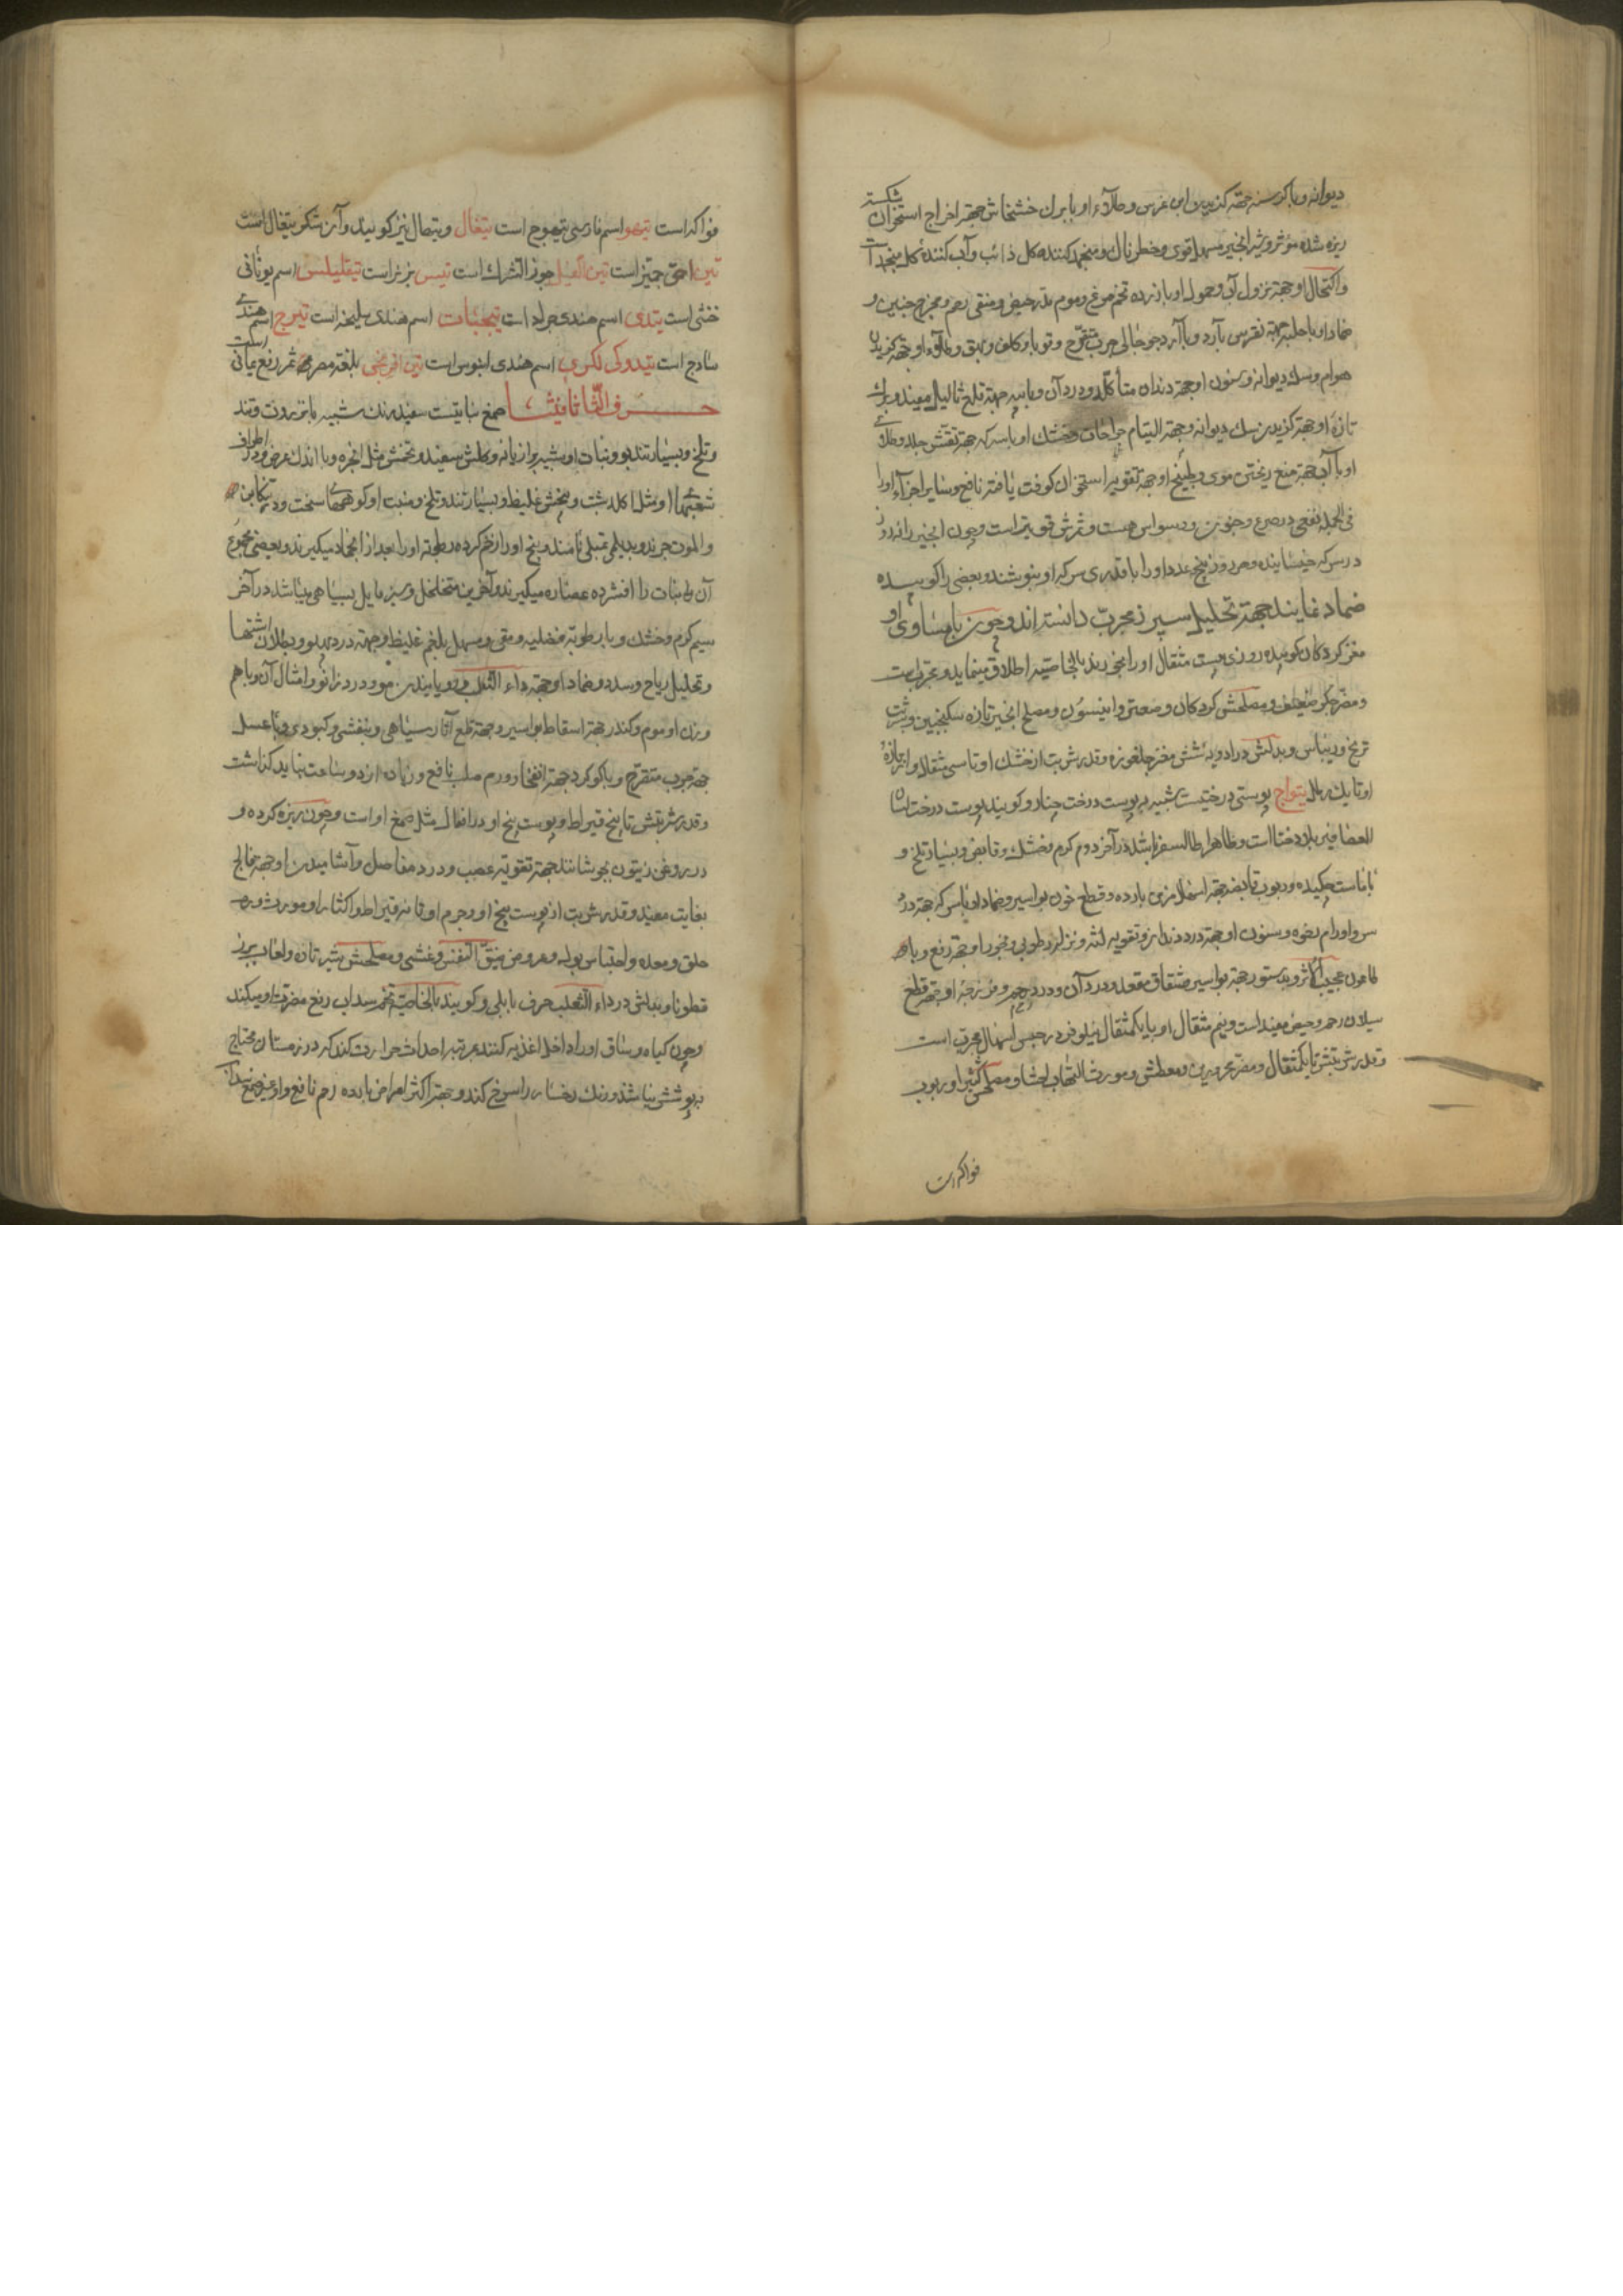 دیوانه و با کرسنه جهة کزیدن ابن عرس و طلاء او با برك خشخاش جهة اخراج استخوان شکسته
ریزه شده مؤثر و شیر انجیر مسهل قوی و خطرناك و منجمد کننده کل ذائب و آب کنندهٔ کل منجمد است
و اکتحال او جهة نزول آب و حمول او با زرده تخم مرغ و موم مدر حیض و منقی رحم و مخرج جنین و
ضماد او با حلبه جهة نقرس بارد و با آرد جو جالی جرب متقرح و قوبا و کلف و بهق و طلاء او جهة کزیدن
هوام و سك دیوانه و سنون او جهة دندان متأکله و درد آن و با پیه جهة قلع ثالیل مفید و برك
تازهٔ او جهة کزیدن سك دیوانه و جهة التیام جراحات و خشك او با سرکه جهة تقشر جلد و طلای
او با آب جهة منع ریختن موی و طبیخ او جهة تقویة استخوان کوفت یافته نافع و سایر اجزاء او را
فی الجمله نفعی در صرع و جنون و وسواس هست و ترش قوی تر است و چون انجیر را نه روز
در سرکه خیسانیده و هر روز پنج عدد او را با قدری سرکه او بنوشند و بعضی را کوبیده
ضماد نمایند جهة تحلیل سپرز مجرب دانسته اند و چون با مساوی او
مغز کردکان کوبیده روزی بیست مثقال او را بخورند بالخاصیه اطلاق مینماید و مجرب است
و مضر جکر ضعیف و مصلحش کردکان و صعتر و انیسون و مصلح انجیر تازه سکنجبین و شربت
ترنج و ریباس و بدلش در ادویه شش مغز جلغوزه و قدر شربت از خشك او تا سی مثقال و از تازهٔ
او تا یك رطل تیواج پوستی درختیست شبیه به پوست درخت چنار و کویند پوست درخت لسان
العصافیر بلاد ختا است و ظاهرا طالسفر باشد در آخر دوم کرم و خشك و قابض و بسیار تلخ و
با تاست چکیده و ربوب قابضه جهة اسهال مزمن بارده و قطع خون بواسیر و ضماد او با سرکه جهة درد
سر و اورام رخوه و سنون او جهة درد دندان و تقویه لثه و نزله رطوبی و بخور او جهة رفع وبا و
طاعون عجیب الاثر و بدستور جهة بواسیر و شقاق مقعد و درد آن و درد رحم و فرزجهٔ او جهة قطع
سیلان رحم و حیض مفید است و نیم مثقال او با یکمثقال نیلوفر در حبس اسهال مجرب است
و قدر شربتش تا یکمثقال و مضر محرورین و معطش و مورث التهاب احشا و مصلحش کثیرا و ربوب
فواکه است
فواکه است تیهو اسم فارسی تیهوج است تیغال و تیهال نیز کویند و آن شکر تیغال است
تین احمق جمیز است تین الفیل جوز الشرك است تیس بز نر است تیقلیلس اسم یونانی
خنثی است تیدی اسم هندی جراد است تیجبات اسم هندی سلیخه است تیرج اسم هندی
ساذج است تیندو کی لکری اسم هندی ابنوس است تین افرنجی بلغة مصر ثمر زقع یمانی است
حــــرف الثّا ثافِثــا صمغ نباتیست سفید رنك شبیه بانزروت و تند
و تلخ و بسیار تند بو و نبات او شبیه برازیانه و کلش سفید و تخمش مثل انجره و با اندك عرض و در اطراف
شعبهها او مثل اکلیل شبت و بیخش غلیظ و بسیار تند و تلخ و منبت او کوههای سخت و در تنکابن
و الموت جرند و بدیلمی تمیلی نامند و بیخ او را زخم کرده رطوبة او را بعد از انجماد میکیرند و بعضی مجموع
آن نبات را افشرده عصاره میکیرند و آخرین متخلخل و سبز مایل بسیاهی میباشد در آخر
سیم کرم و خشك و با رطوبة فضلیه و مقی و مسهل بلغم غلیظ و جهة درد پهلو و بطلان اشتها
و تحلیل ریاح و سدد و ضماد او جهة داء الثعلب و رویانیدن مو و درد زانو و امثال آن و با هم
وزن او موم و کندر جهة اسقاط بواسیر و جهة قلع آثار سیاهی و بنفشی و کبودی و با عسل
جهة جرب متقرح و با کوکرد جهة انفجار ورم صلب نافع و زیاده از دو ساعت نباید کذاشت
و قدر شربتش تا پنج قیراط و پوست بیخ او در افعال مثل صمغ او است و چون ریزه کرده و
در روغن زیتون بجوشانند جهة تقویة عصب و درد مفاصل و آشامیدن او جهة فالج
بغایت مفید و قدر شربت از پوست بیخ او و جرم او تا نه قیراط و اکثار او مورث ورم
حلق و معده و احتباس بول و عروض ضیق النفس و غشی و مصلحش شیر تازه و لعاب بزر
قطونا و بدلش در داء الثعلب حرف بابلی و کویند بالخاصیة تخم سداب رفع مضرت او میکند
و چون کیاه و ساق او را داخل اغذیه کنند بمرتبه احداث حرارت کند که در زمستان محتاج
به پوشش نباشد و رنك رخسار را سرخ کند و جهة اکثر امراض بارده رحم نافع و او غیر صمغ سداب